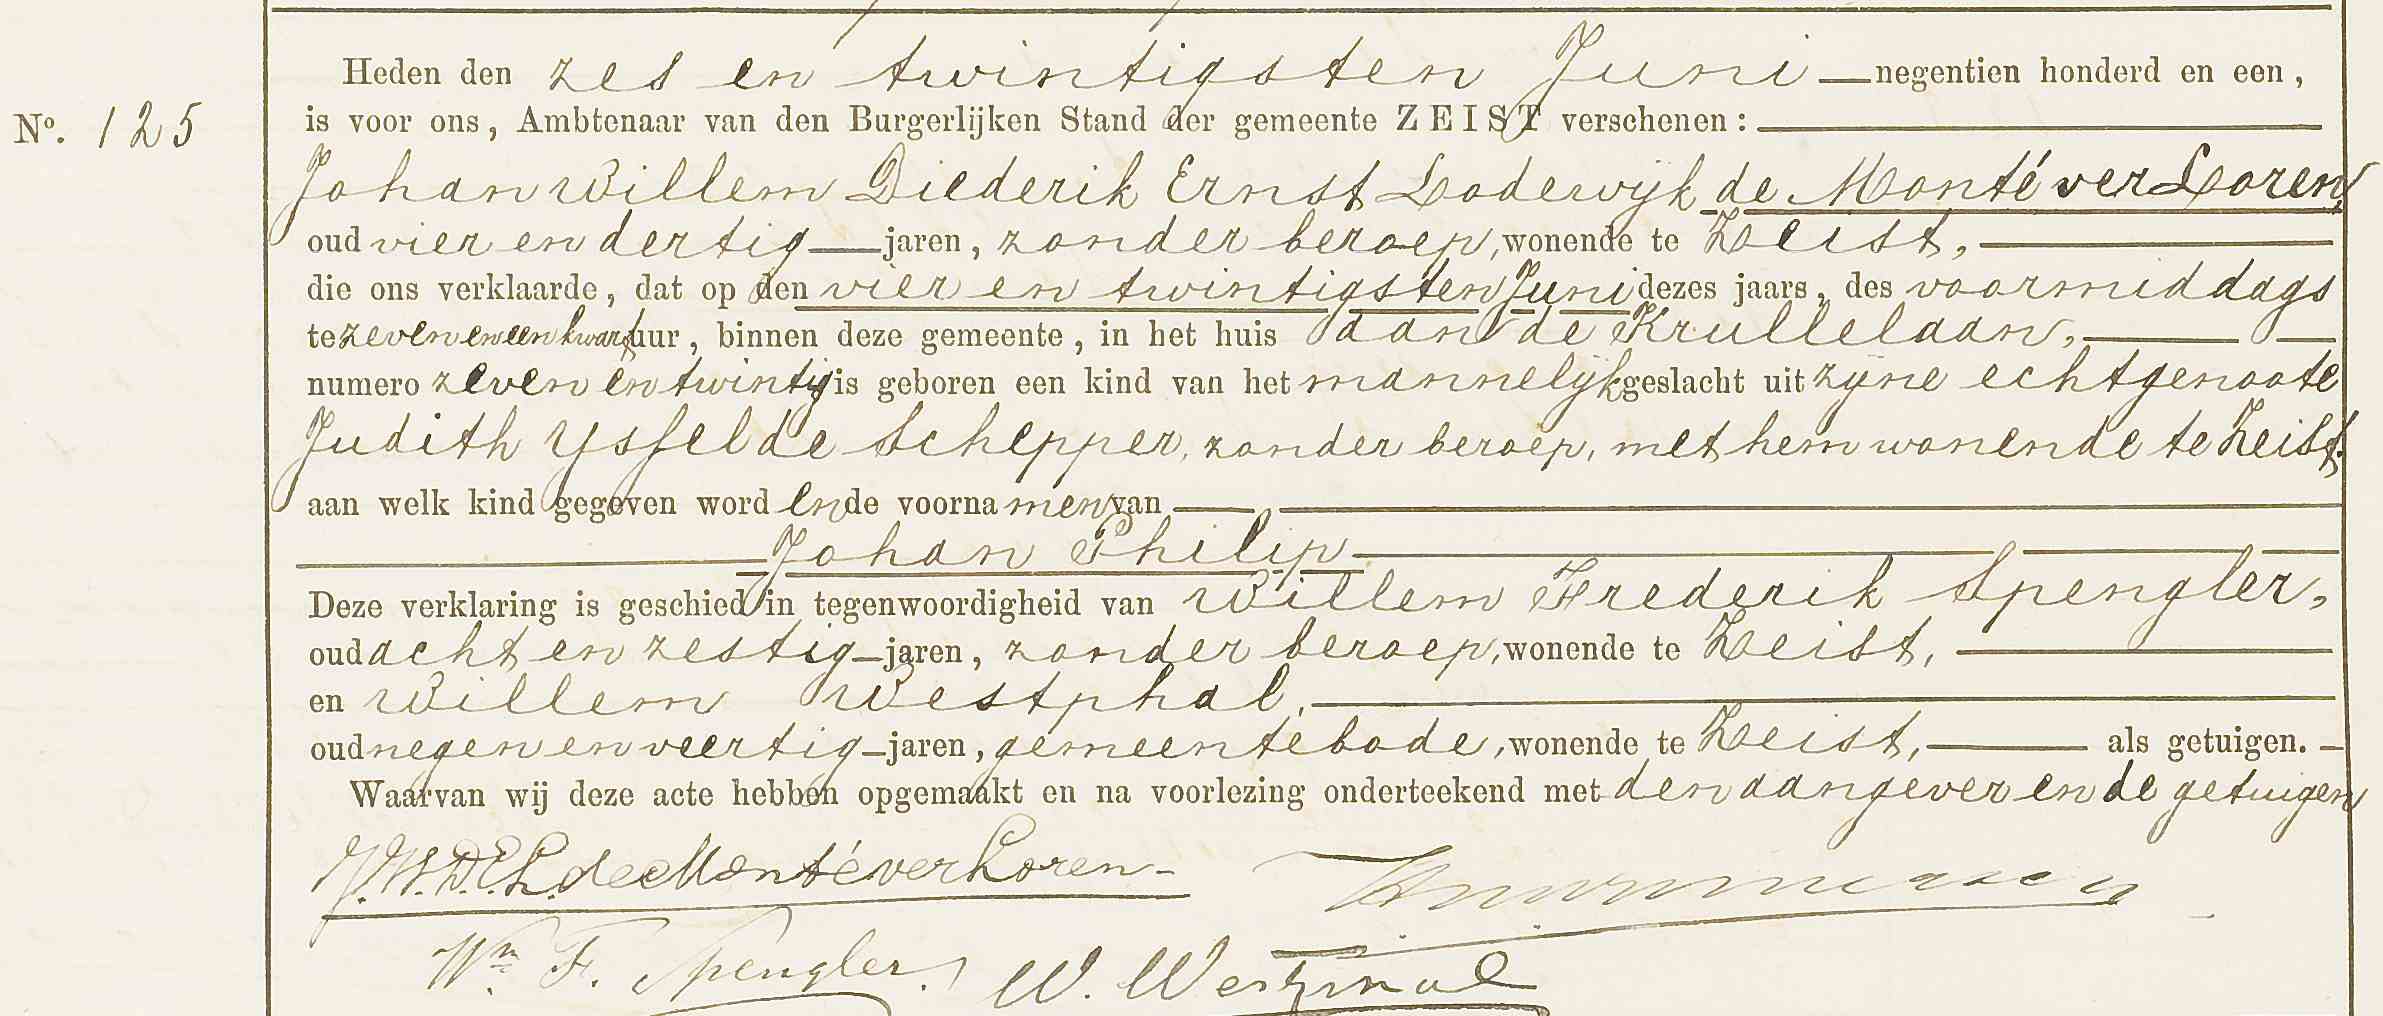 Heden den zes en twintigsten Juni negentien honderd en een,
No. 125
is voor ons, Ambtenaar van den Burgerlijken Stand der gemeente ZEIST verschenen:
Johan Willem Diederik Ernst Lodewijk de Monté verLoren,
oud vier en dertig jaren, zonder beroep, wonende te Zeist,
die ons verklaarde, dat op den vier en twintigsten Juni dezes jaars, des voormiddags
te zeven en een kwart uur, binnen deze gemeente, in het huis aan de Krullelaan,
numero zeven en twintig is geboren een kind van het mannelijk geslacht uit zijne echtgenoote
Judith Ysfelde Schepper, zonder beroep, met hem wonende te Zeist.
aan welk kind gegeven worden de voornamen van
Johan Philip
Deze verklaring is geschied in tegenwoordigheid van Willem Frederik Spengler,
oud acht en zestig jaren, zonder beroep, wonende te Zeist,
en Willem Westphal,
oud negen en veertig jaren, gemeentebode, wonende te Zeist, als getuigen.
Waarvan wij deze acte hebben opgemaakt en na voorlezing onderteekend met den aangever en de getuigen
J.W.D.E.L. de Monté verLoren
Wm F. Spengler. W. Westphal